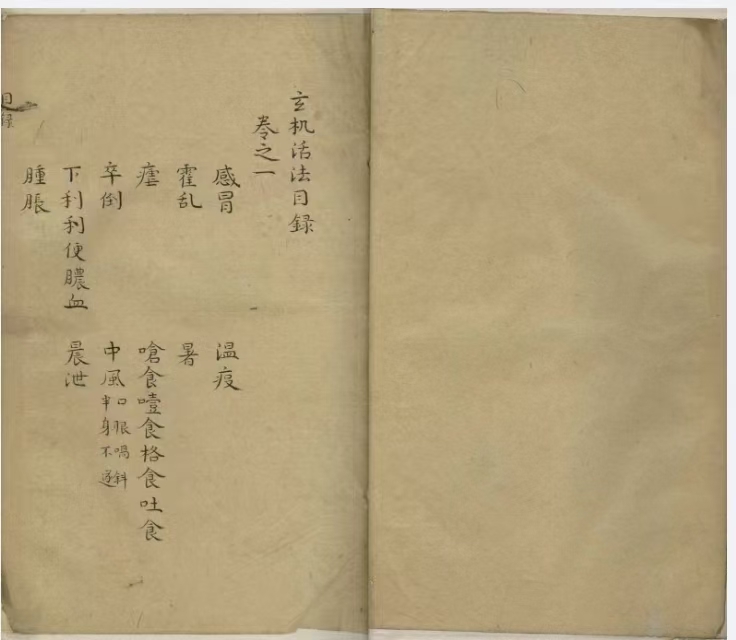 玄机活法目録
卷之一
感冒 温疫
霍乱 暑
瘧 嗆食噎食格食吐食
卒倒 中風口眼喎斜半身不遂
下利利便膿血 晨泄
腫脹
目録